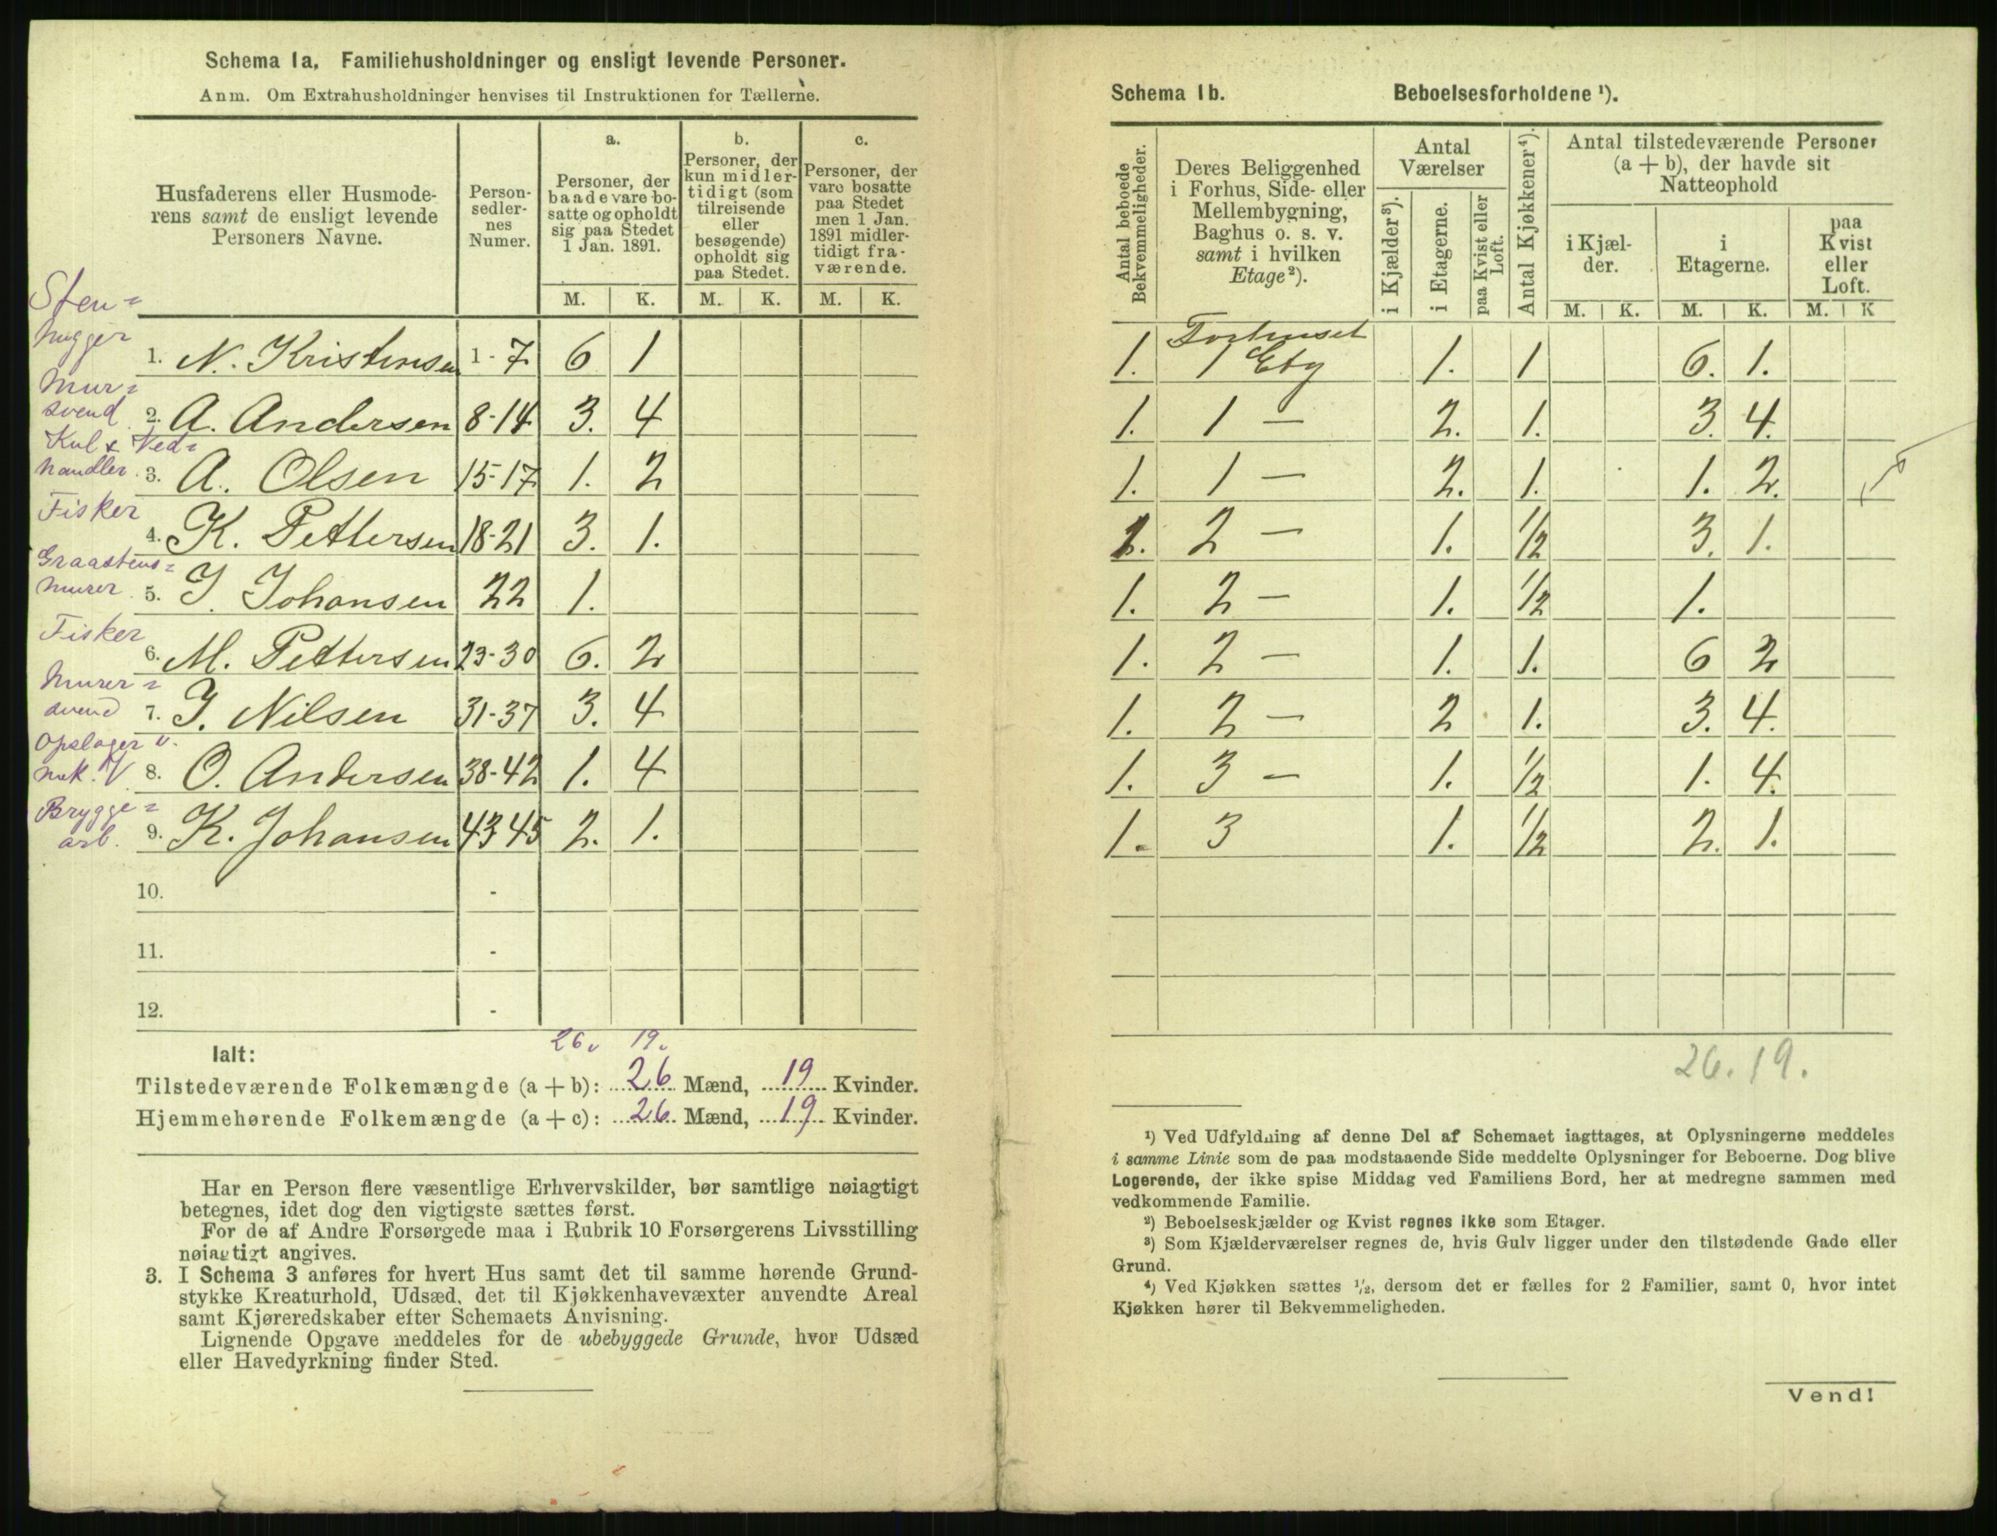 Schema 1a. Familiehusholdninger og ensligt levende Personer.
Anm. Om Extrahusholdninger henvises til Instruktionen for Tællerne.
Husfaderens eller Husmoderens samt de ensligt levende Personers Navne.
Personsedlernes Numer.
a. Personer, der baade vare bosatte og opholdt sig paa Stedet 1 Jan. 1891.
b. Personer, der kun midlertidigt (som tilreisende eller besøgende) opholdt sig paa Stedet.
c. Personer, der vare bosatte paa Stedet men 1 Jan. 1891 midlertidigt fraværende.
M. K. M. K. M. K.
Stenhugger 1. N. Kristensen 1-7 6 1
Mursvend 2. A. Andersen 8-14 3. 4
Kul & Vedhandler. 3. A. Olsen 15-17 1. 2
Fisker 4. K. Pettersen 18-21 3. 1.
Graastensmurer. 5. J. Johansen 22 1.
Fisker 6. M. Pettersen 23-30 6. 2
Murersvend 7. J. Nilsen 31-37 3. 4
Opslager v. mek. V. 8. O. Andersen 38-42 1. 4
Bryggearb. 9. K. Johansen 43 45 2. 1.
10. -
11. -
12. -
26. 19.
Ialt:
Tilstedeværende Folkemængde (a + b): 26 Mænd, 19 Kvinder.
Hjemmehørende Folkemængde (a + c): 26 Mænd, 19 Kvinder.
Har en Person flere væsentlige Erhvervskilder, bør samtlige nøiagtigt
betegnes, idet dog den vigtigste sættes først.
For de af Andre Forsørgede maa i Rubrik 10 Forsørgerens Livsstilling
nøiagtigt angives.
3. I Schema 3 anføres for hvert Hus samt det til samme hørende Grund-
stykke Kreaturhold, Udsæd, det til Kjøkkenhavevæxter anvendte Areal
samt Kjøreredskaber efter Schemaets Anvisning.
Lignende Opgave meddeles for de ubebyggede Grunde, hvor Udsæd
eller Havedyrkning finder Sted.
Schema 1b. Beboelsesforholdene ¹).
Antal beboede Bekvemmeligheder.
Deres Beliggenhed i Forhus, Side- eller Mellembygning, Baghus o. s. v. samt i hvilken Etage²).
Antal Værelser
i Kjælder³).
i Etagerne.
paa Kvist eller Loft.
Antal Kjøkkener⁴).
Antal tilstedeværende Personer (a + b), der havde sit Natteophold
i Kjælder.
i Etagerne.
paa Kvist eller Loft.
M. K. M. K. M. K
1. Forhuset 1 Etg 1. 1 6. 1.
1. 1 — 2. 1. 3. 4.
1. 1 — 2. 1. 1. 2.
1. 2 — 1. 1/2 3. 1.
1. 2 — 1. 1/2 1.
1. 2 — 1. 1. 6 2
1. 2 — 2 1. 3. 4.
1. 3 — 1. 1/2 1. 4.
1. 3 1. 1/2 2. 1.
26. 19.
¹) Ved Udfyldning af denne Del af Schemaet iagttages, at Oplysningerne meddeles
i samme Linie som de paa modstaaende Side meddelte Oplysninger for Beboerne. Dog blive
Logerende, der ikke spise Middag ved Familiens Bord, her at medregne sammen med
vedkommende Familie.
²) Beboelseskjælder og Kvist regnes ikke som Etager.
³) Som Kjælderværelser regnes de, hvis Gulv ligger under den tilstødende Gade eller
Grund.
⁴) Ved Kjøkken sættes ¹/₂, dersom det er fælles for 2 Familier, samt 0, hvor intet
Kjøkken hører til Bekvemmeligheden.
Vend!